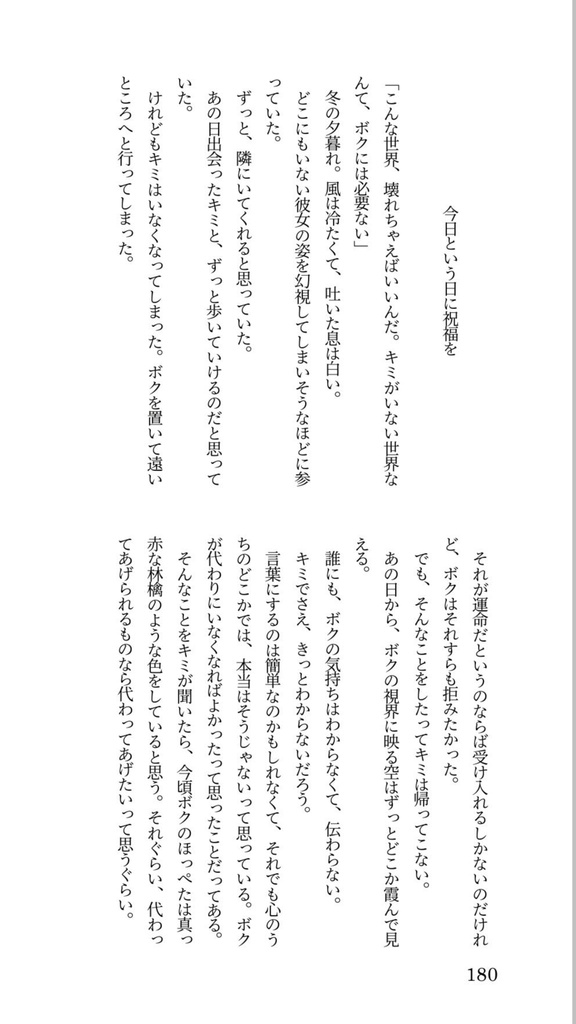 今日という日に祝福を
「こんな世界、壊れちゃえばいいんだ。キミがいない世界な
んて、ボクには必要ない」
冬の夕暮れ。風は冷たくて、吐いた息は白い。
どこにもいない彼女の姿を幻視してしまいそうなほどに参
っていた。
ずっと、隣にいてくれると思っていた。
あの日出会ったキミと、ずっと歩いていけるのだと思って
いた。
けれどもキミはいなくなってしまった。ボクを置いて遠い
ところへと行ってしまった。
それが運命だというのならば受け入れるしかないのだけれ
ど、ボクはそれすらも拒みたかった。
でも、そんなことをしたってキミは帰ってこない。
あの日から、ボクの視界に映る空はずっとどこか霞んで見
える。
誰にも、ボクの気持ちはわからなくて、伝わらない。
キミでさえ、きっとわからないだろう。
言葉にするのは簡単なのかもしれなくて、それでも心のう
ちのどこかでは、本当はそうじゃないって思っている。ボク
が代わりにいなくなればよかったって思ったことだってある。
そんなことをキミが聞いたら、今頃ボクのほっぺたは真っ
赤な林檎のような色をしていると思う。それぐらい、代わっ
てあげられるものなら代わってあげたいって思うぐらい。
180